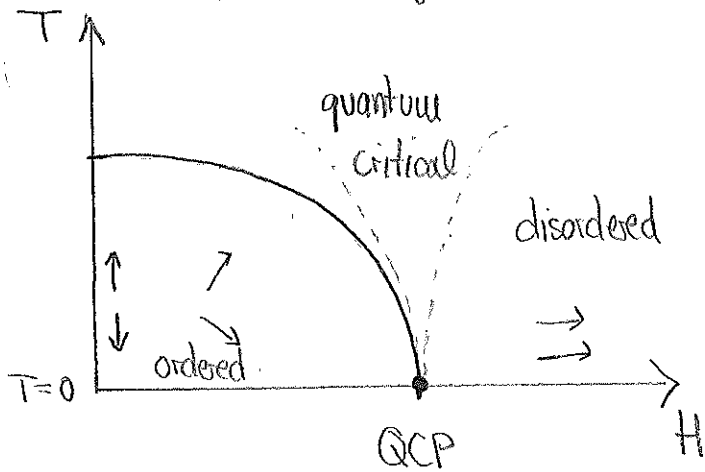 T
quantum
critical
disordered
ordered
T=0
QCP
H